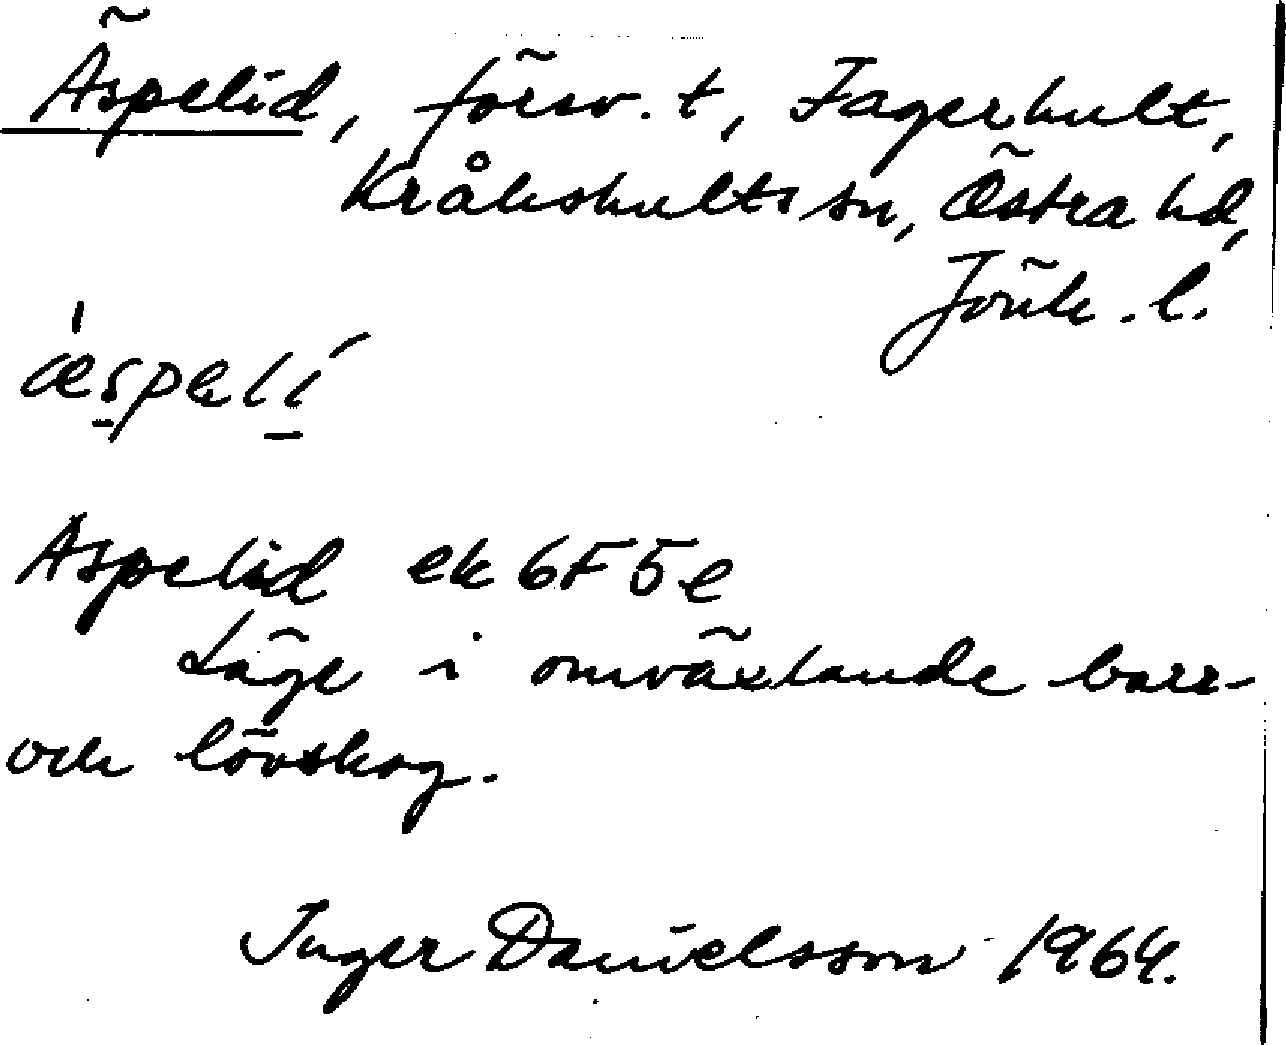 Äspelid, försv. t, Fagerhult,
Kråkshults sn, Östra hd,
Jönk. l.
æspəlí
Aspelid ek 6F 5e
Läge i omväxlande barr-
och lövskog.
Inger Danielsson 1964.